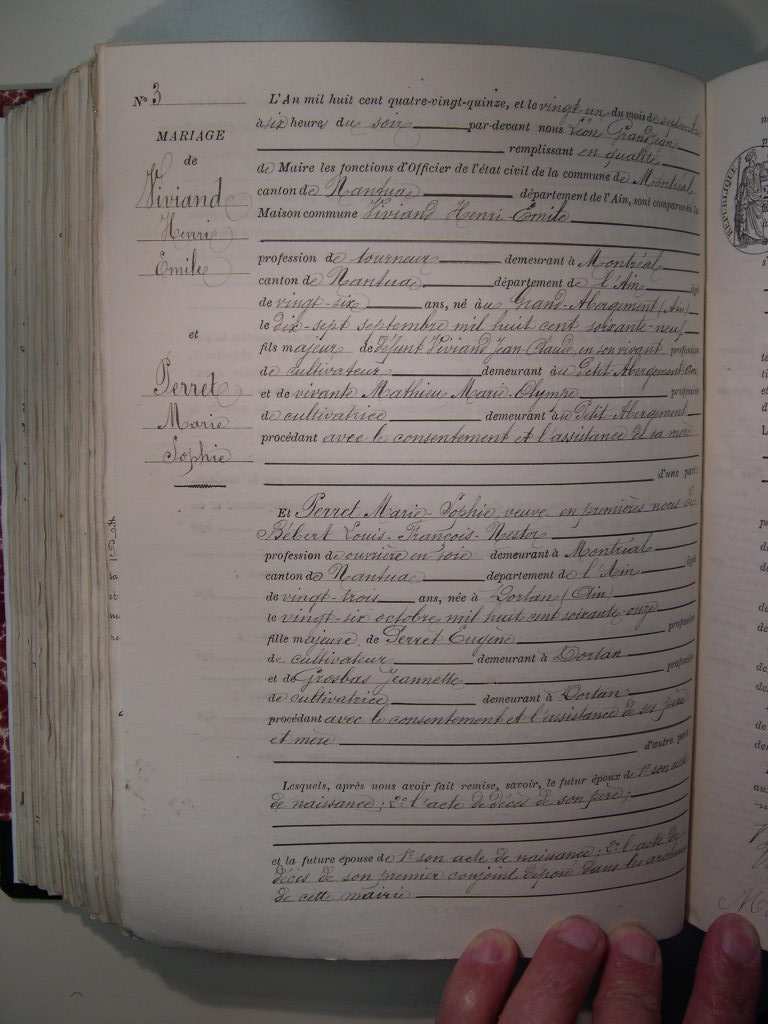 N° 3
MARIAGE
de
Viviand
Henri
Emile
et
Perret
Marie
Sophie
L'An mil huit cent quatre-vingt-quinze, et le vingt un du mois de septembre
à six heure du soir par-devant nous Léon Grandjean
remplissant en qualité
de Maire les fonctions d'Officier de l'état civil de la commune de Montréal
canton de Nantua département de l'Ain, sont comparus en la
Maison commune Viviand Henri Emile
profession de tourneur demeurant à Montréal
canton de Nantua département de l'Ain âgé
de vingt-six ans, né à u Grand-Abergement (Ain)
le dix-sept septembre mil huit cent soixante-neuf
fils majeur de défunt Viviand Jean Claude en son vivant profession
de cultivateur demeurant à u Petit Abergement
et de vivante Mathieu Marie Olympe profession
de cultivatrice demeurant à u Petit Abergement
procédant avec le consentement et l'assistance de sa mère
d'une part;
Et Perret Marie-Sophie, veuve en premières noces de
Bébert Louis-François-Nestor
profession de ouvrière en soie demeurant à Montréal
canton de Nantua département de l'Ain âgée
de vingt-trois ans, née à Dortan (Ain)
le vingt-six octobre mil huit cent soixante onze
fille majeure de Perret Eugène profession
de cultivateur demeurant à Dortan
et de Grosbas Jeannette profession
de cultivatrice demeurant à Dortan
procédant avec le consentement et l'assistance de ses père
et mère d'autre part
Lesquels, après nous avoir fait remise, savoir, le futur époux de 1° son acte
de naissance; 2° l'acte de décès de son père;
et la future épouse de 1° son acte de naissance; 2° l'acte de
décès de son premier conjoint déposé dans les archives
de cette mairie
RÉPUBLIQUE